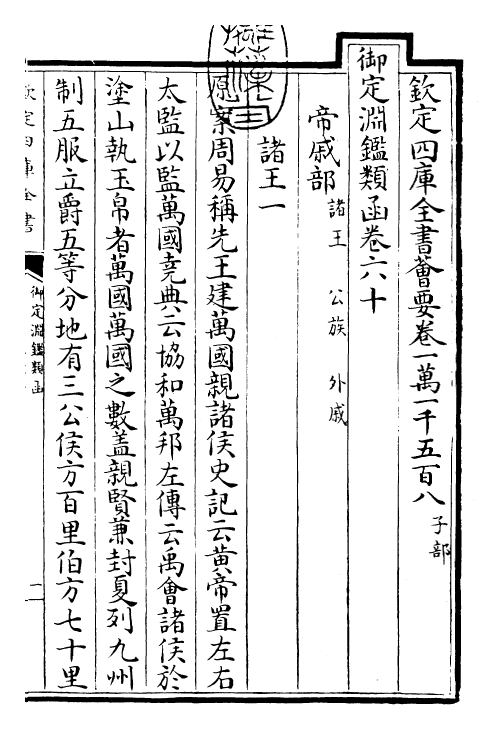 欽定四庫全書薈要卷一萬一千五百八 子部
御定淵鑑類函卷六十
帝戚部 諸王 公族 外戚
諸王一
原案周易稱先王建萬國親諸侯史記云黃帝置左右
太監以監萬國堯典云協和萬邦左傳云禹會諸侯於
塗山執玉帛者萬國萬國之數蓋親賢兼封夏列九州
制五服立爵五等分地有三公侯方百里伯方七十里
欽定四庫全書
御定淵鑑類函